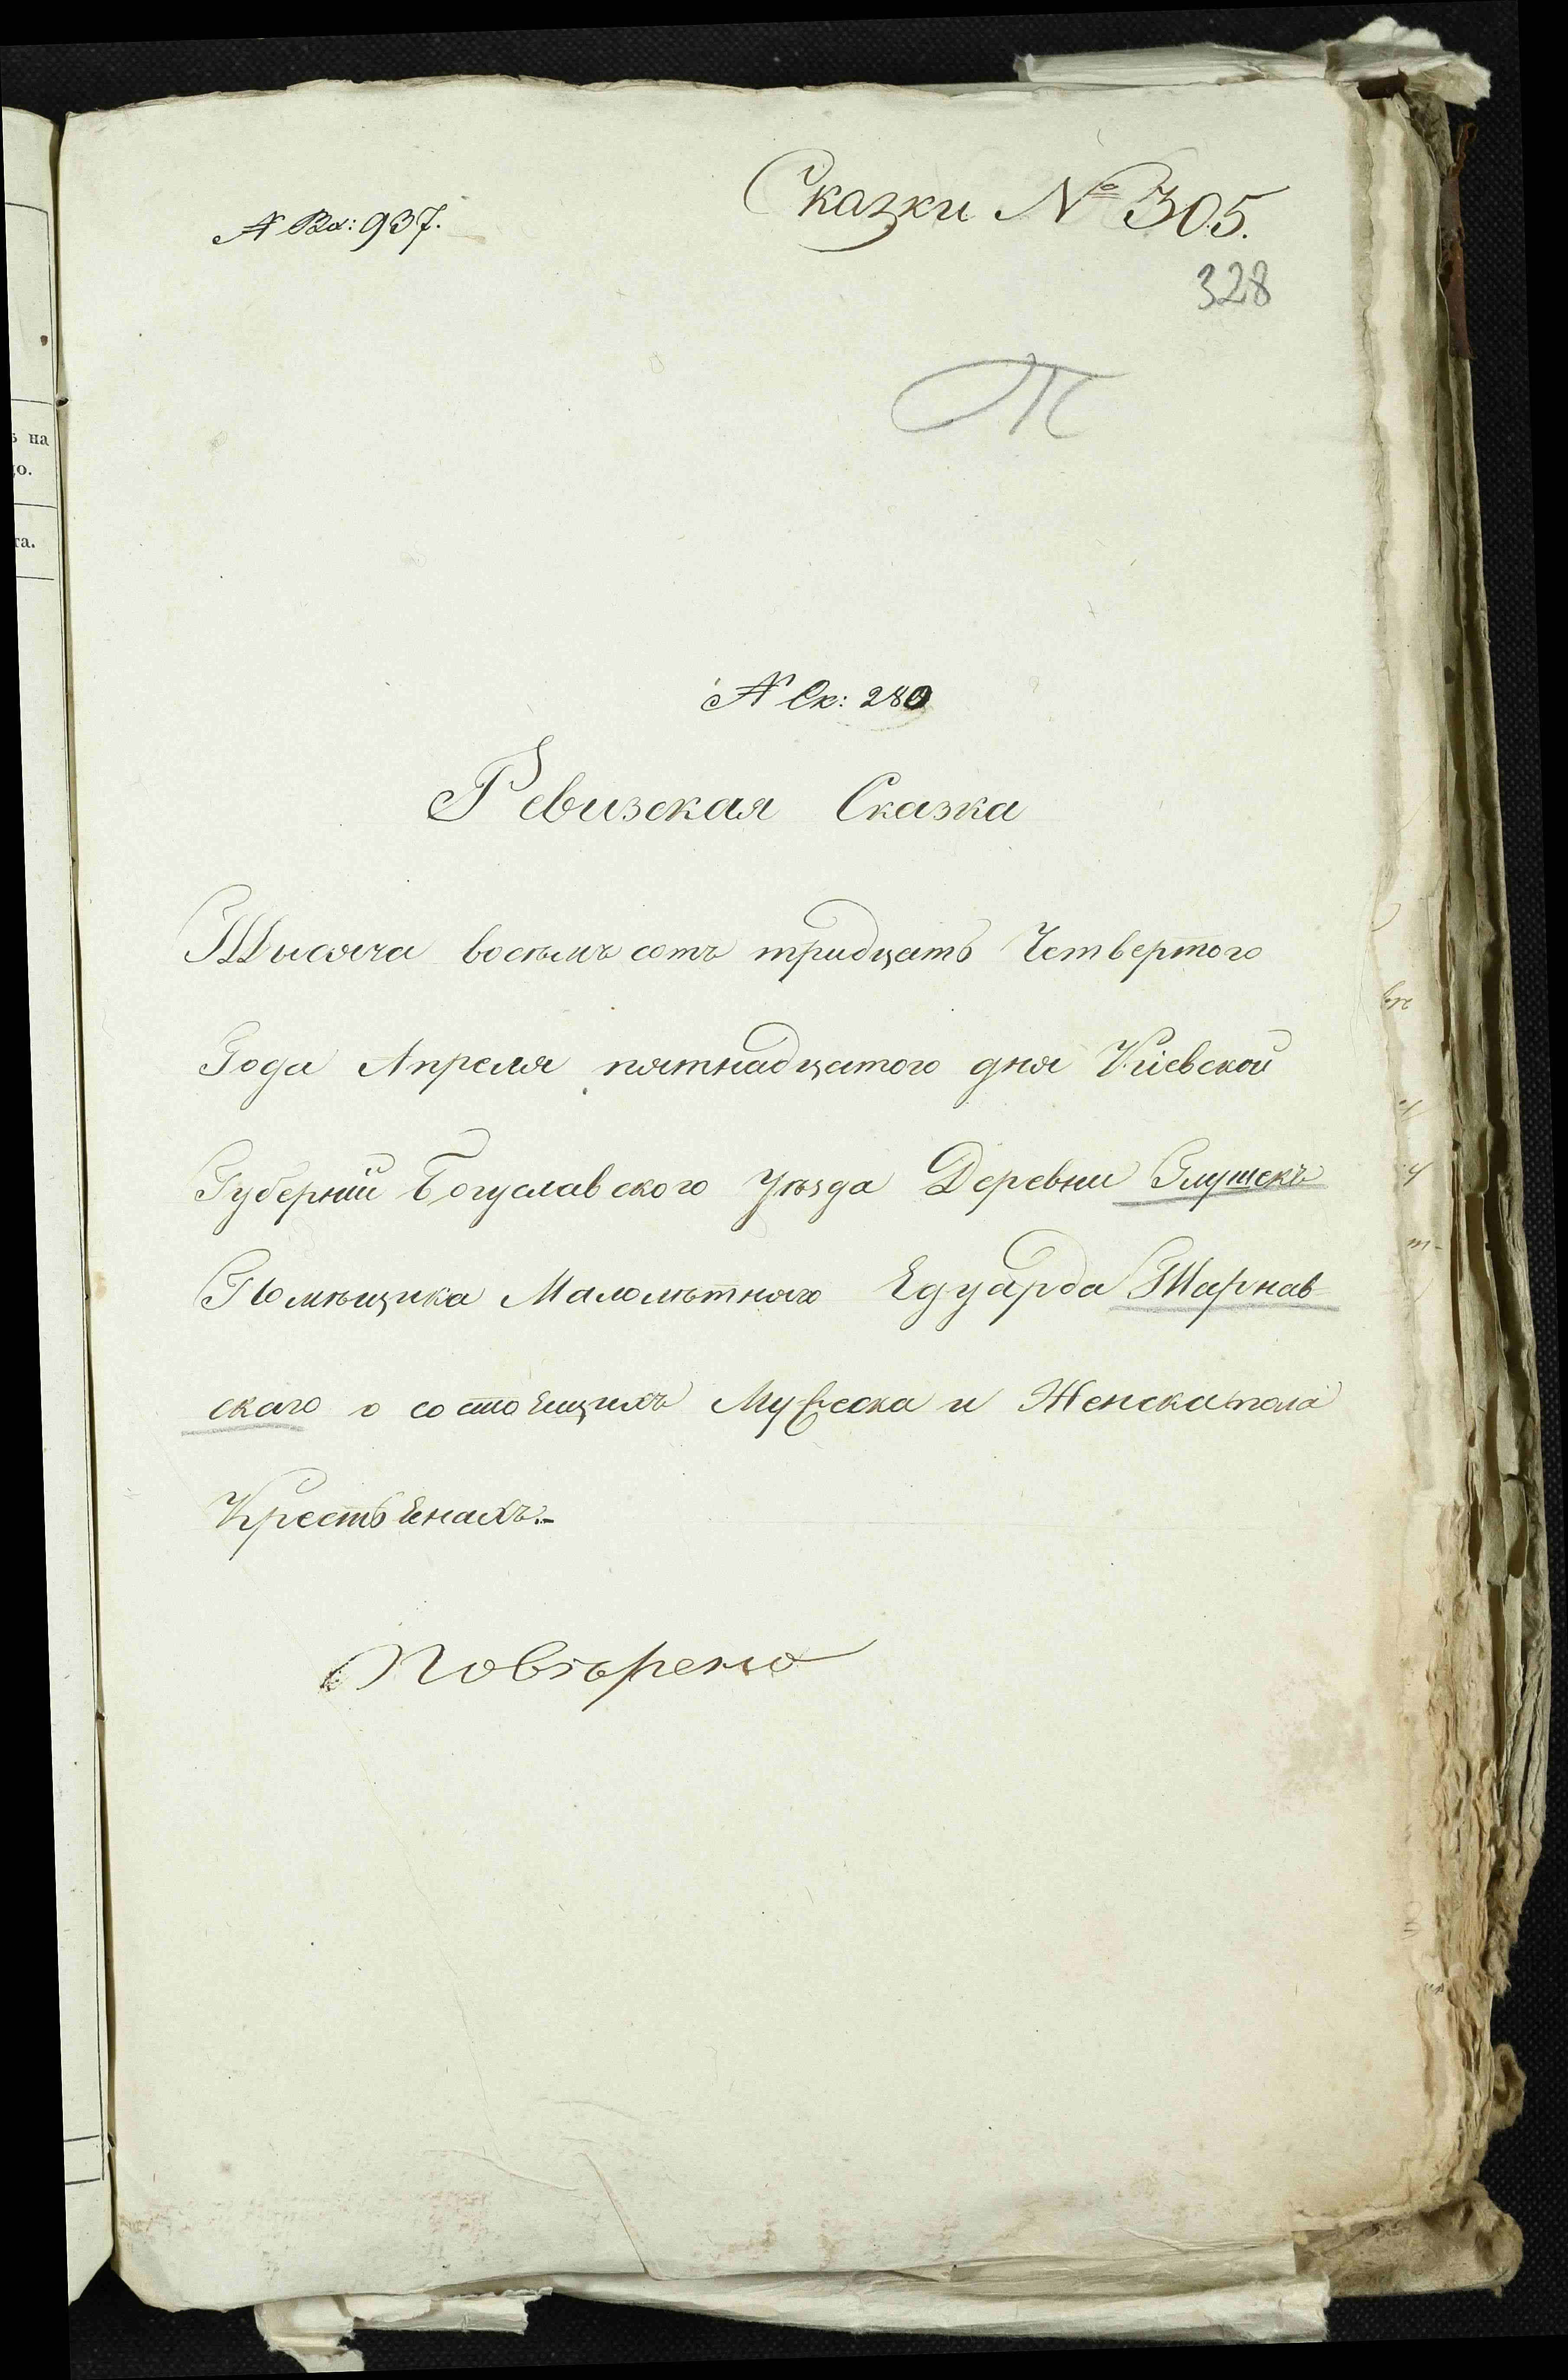 № Вх: 937.
Сказки № 305.
328
Т
№ Ск: 280
Ревизская Сказка
Тысяча восемь сотъ тридцать Четвертого
Года Апреля пятнадцатого дня Кіевской
Губерніи Богуславского Уѣзда Деревни Глушекъ
Помѣщика Малолѣтнего Едуарда Тарнав
скаго о состоещихъ Мужеска и Женска пола
Крестьенахъ.-
Повѣрено
ъ на
о.
та.